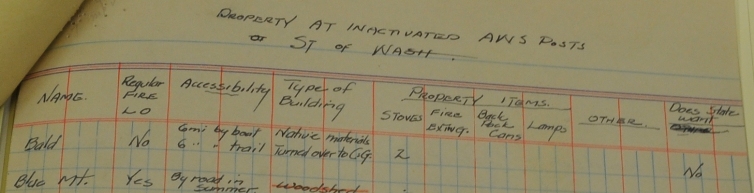 PROPERTY AT INACTIVATED AWS POSTS
OF ST OF WASH.
NAME. Regular FIRE LO Accessibility Type of Building PROPERTY ITEMS. Does State want
STOVES FIRE EXTING. Back Pack Cans Lamps OTHER
Bald No 6 mi by boat Native materials 2 No
6 " " trail Turned over to C.G.
Blue Mt. Yes By road in summer woodshed